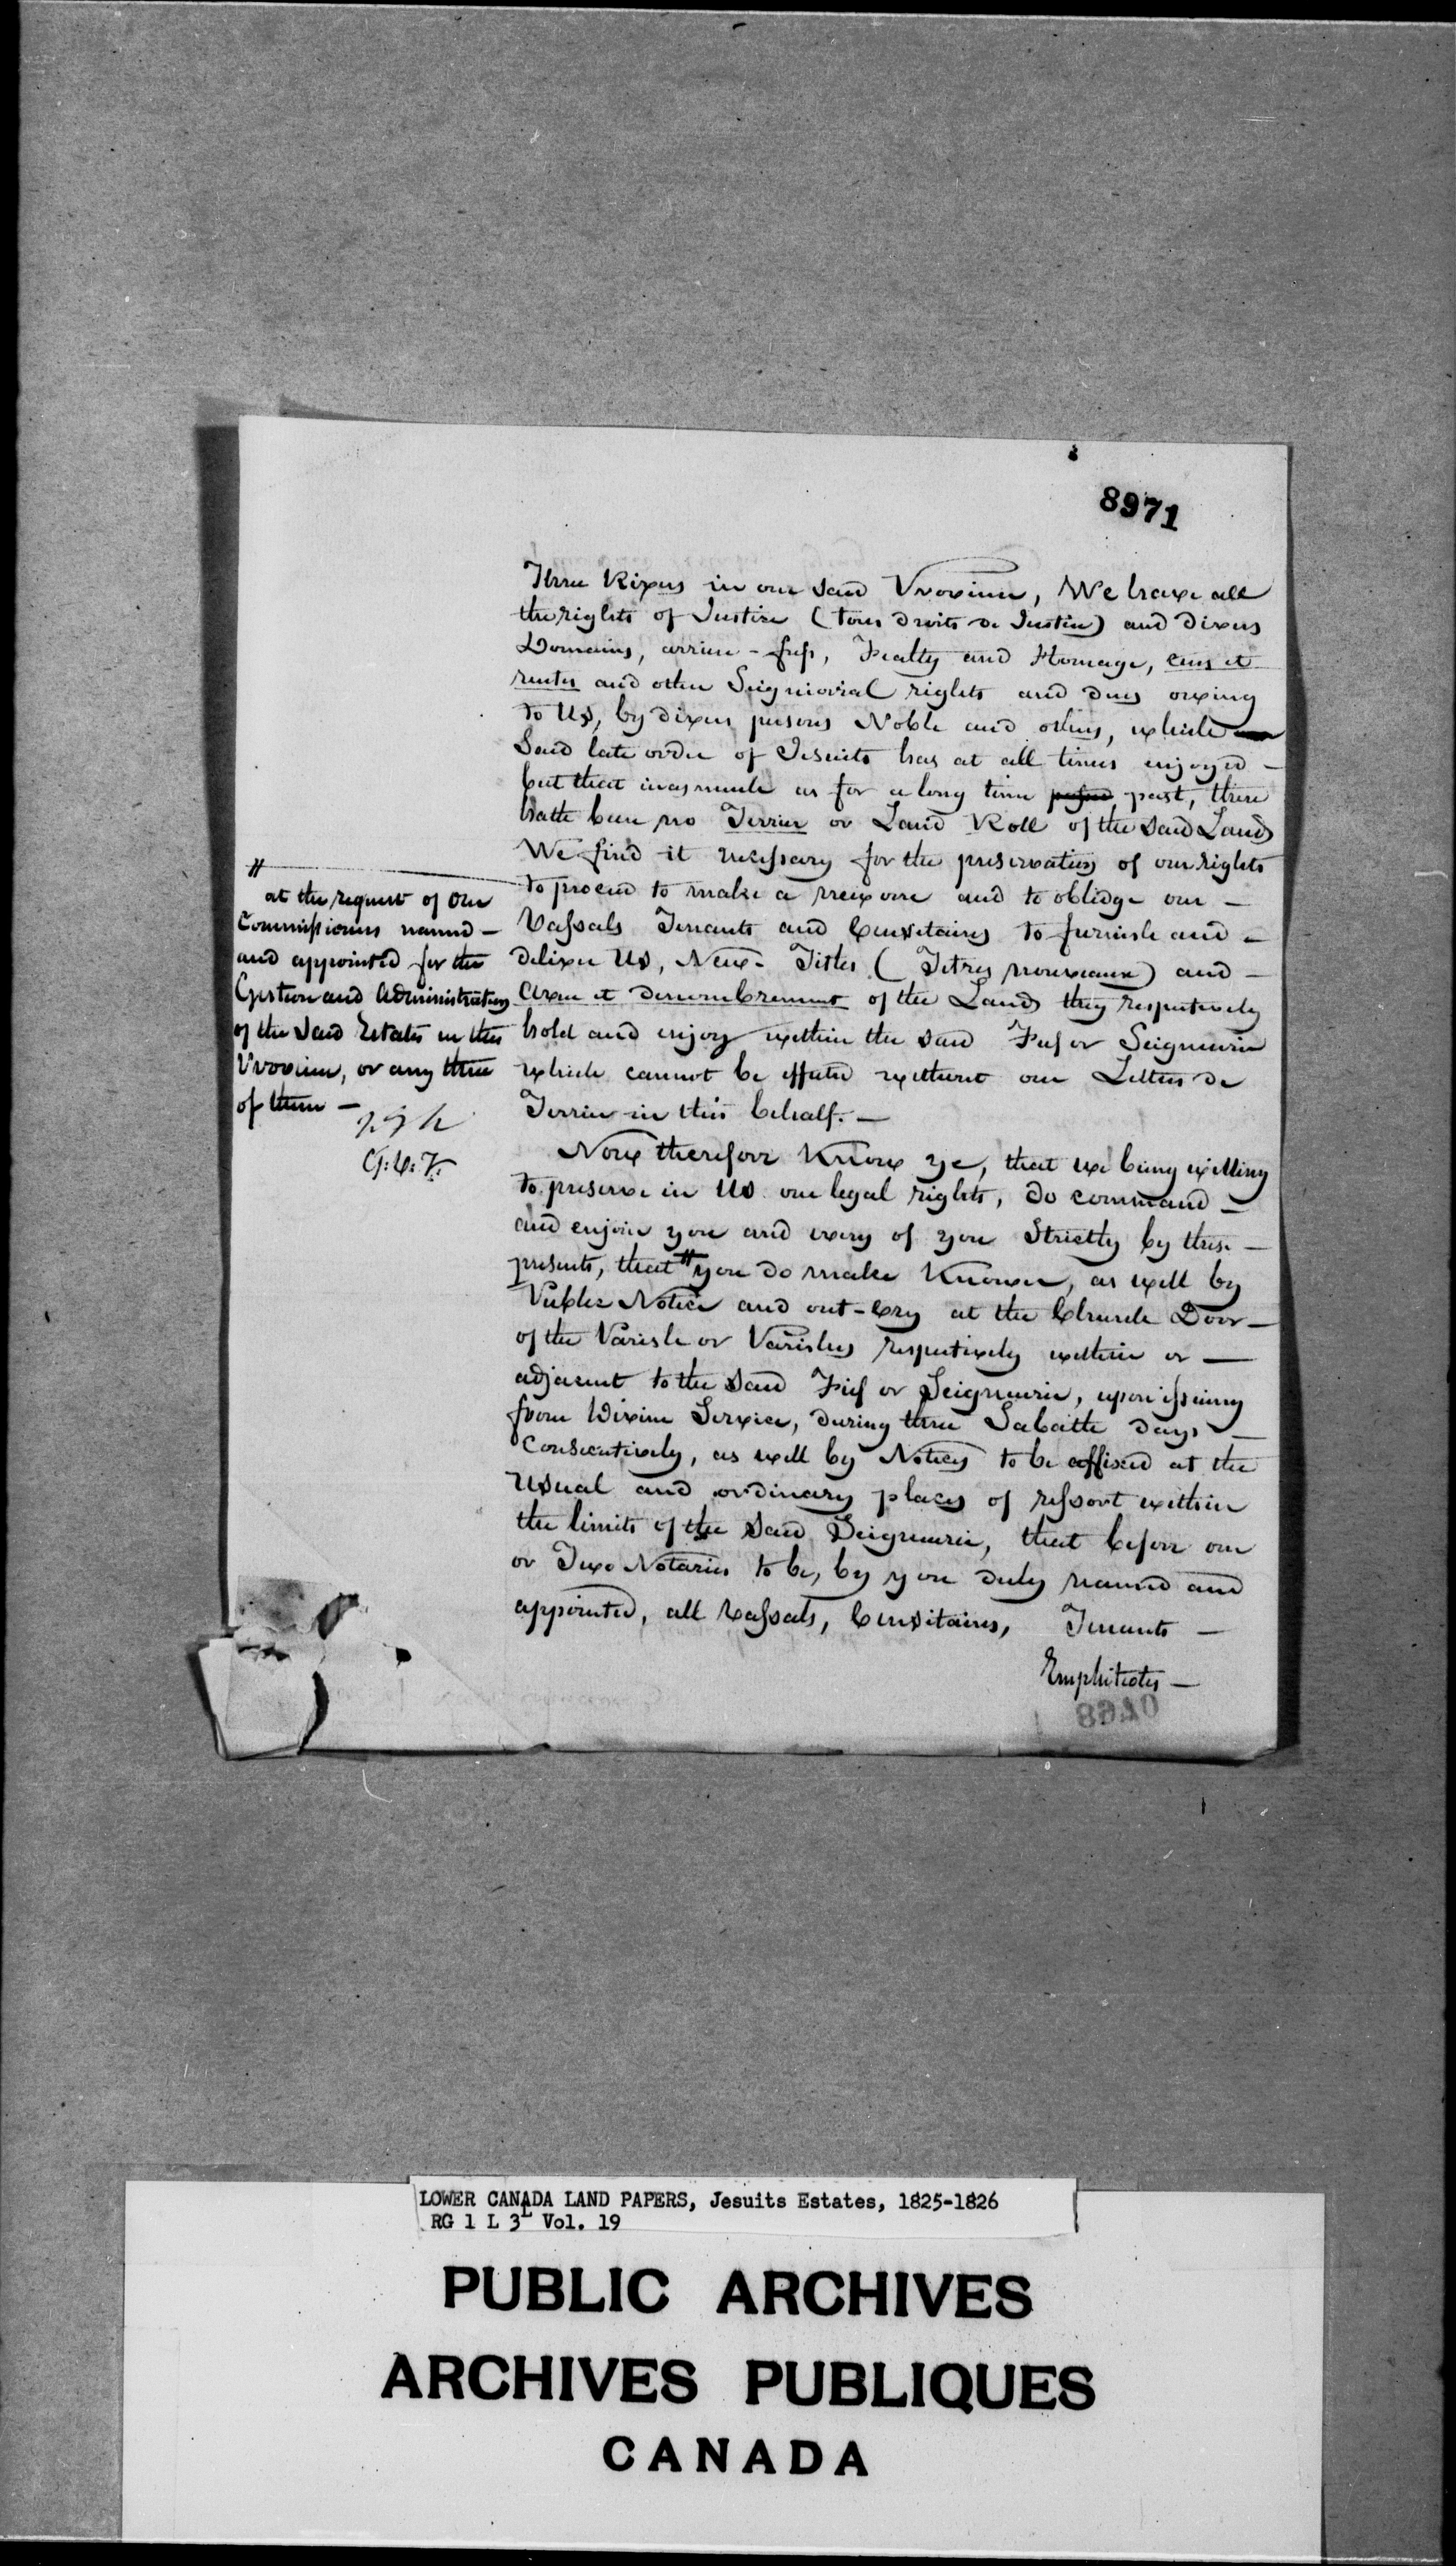 8971
Three Rivers in our said Province, We have all
the rights of Justice (tous droits de Justice) and divers
Domains, arriere-fiefs, Fealty and Homage, cens et
rentes and other Seigniorial rights and dues owing
to Us, by divers persons Noble and others, which
said late order of Jesuits has at all times enjoyed —
but that inasmuch as for a long time passed past, there
hath been no Terrier or Land Roll of the said Lands
We find it necessary for the preservation of our rights
to proceed to make a new one and to oblidge our —
Vassals Tenants and Censitaires to furnish and —
deliver Us, New Titles (Titres nouveaux) and —
aveu et denombrement of the Lands they respectively
hold and enjoy within the said Fief or Seigneurie
which cannot be effected without our Letters de
Terrier in this behalf. —
Now therefore Know ye, that we being willing
to preserve in Us our legal rights, do command —
and enjoin you and every of you Strictly by these —
presents, that // you do make Known, as well by
Public Notice and out-Cry at the Church Door —
of the Parish or Parishes respectively within or —
adjacent to the said Fief or Seigneurie, upon issuing
from Divine Service, during three Sabath days —
consecutively, as well by Notices to be affixed at the
usual and ordinary places of ressort within
the limits of the said Seigneurie, that before one
or Two Notaries to be, by you duly named and
appointed, all Vassals, Censitaires, Tenants —
Emphiteotes —
//
at the request of Our
Commissioners named —
and appointed for the
Gestion and Administration
of the said Estates in this
Province, or any three
of them —
8940
LOWER CANADA LAND PAPERS, Jesuits Estates, 1825-1826
RG 1 L 3L Vol. 19
PUBLIC ARCHIVES
ARCHIVES PUBLIQUES
CANADA